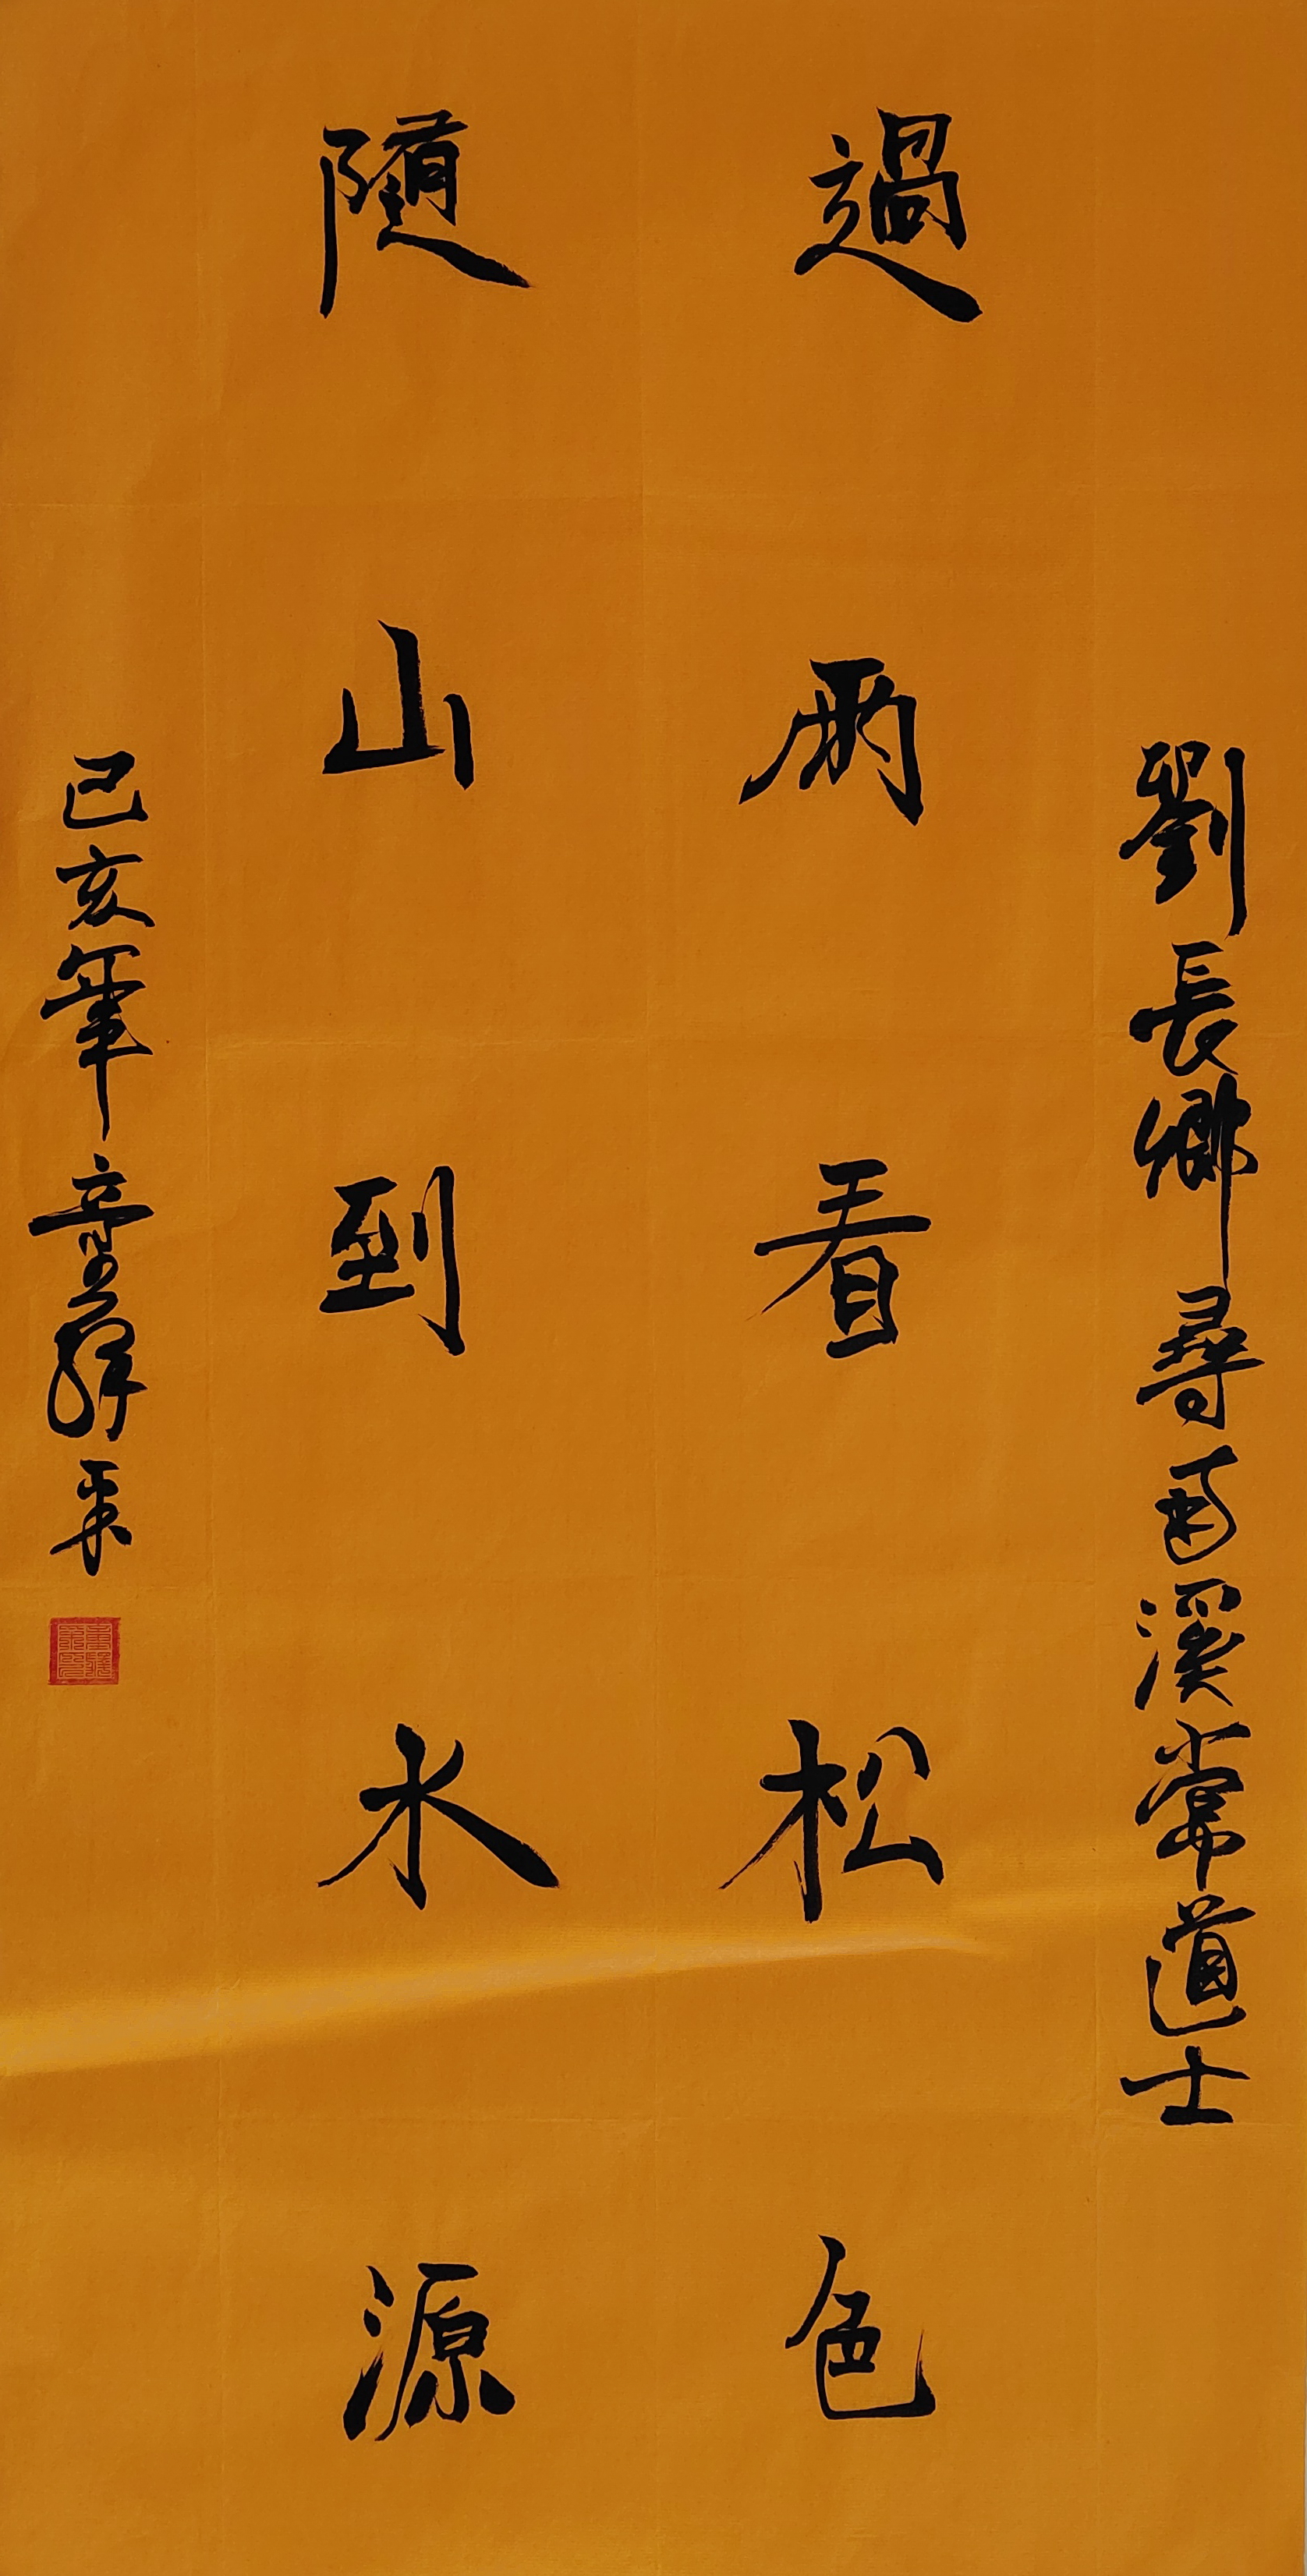 劉長卿尋南溪常道士
過雨看松色
隨山到水源
己亥年